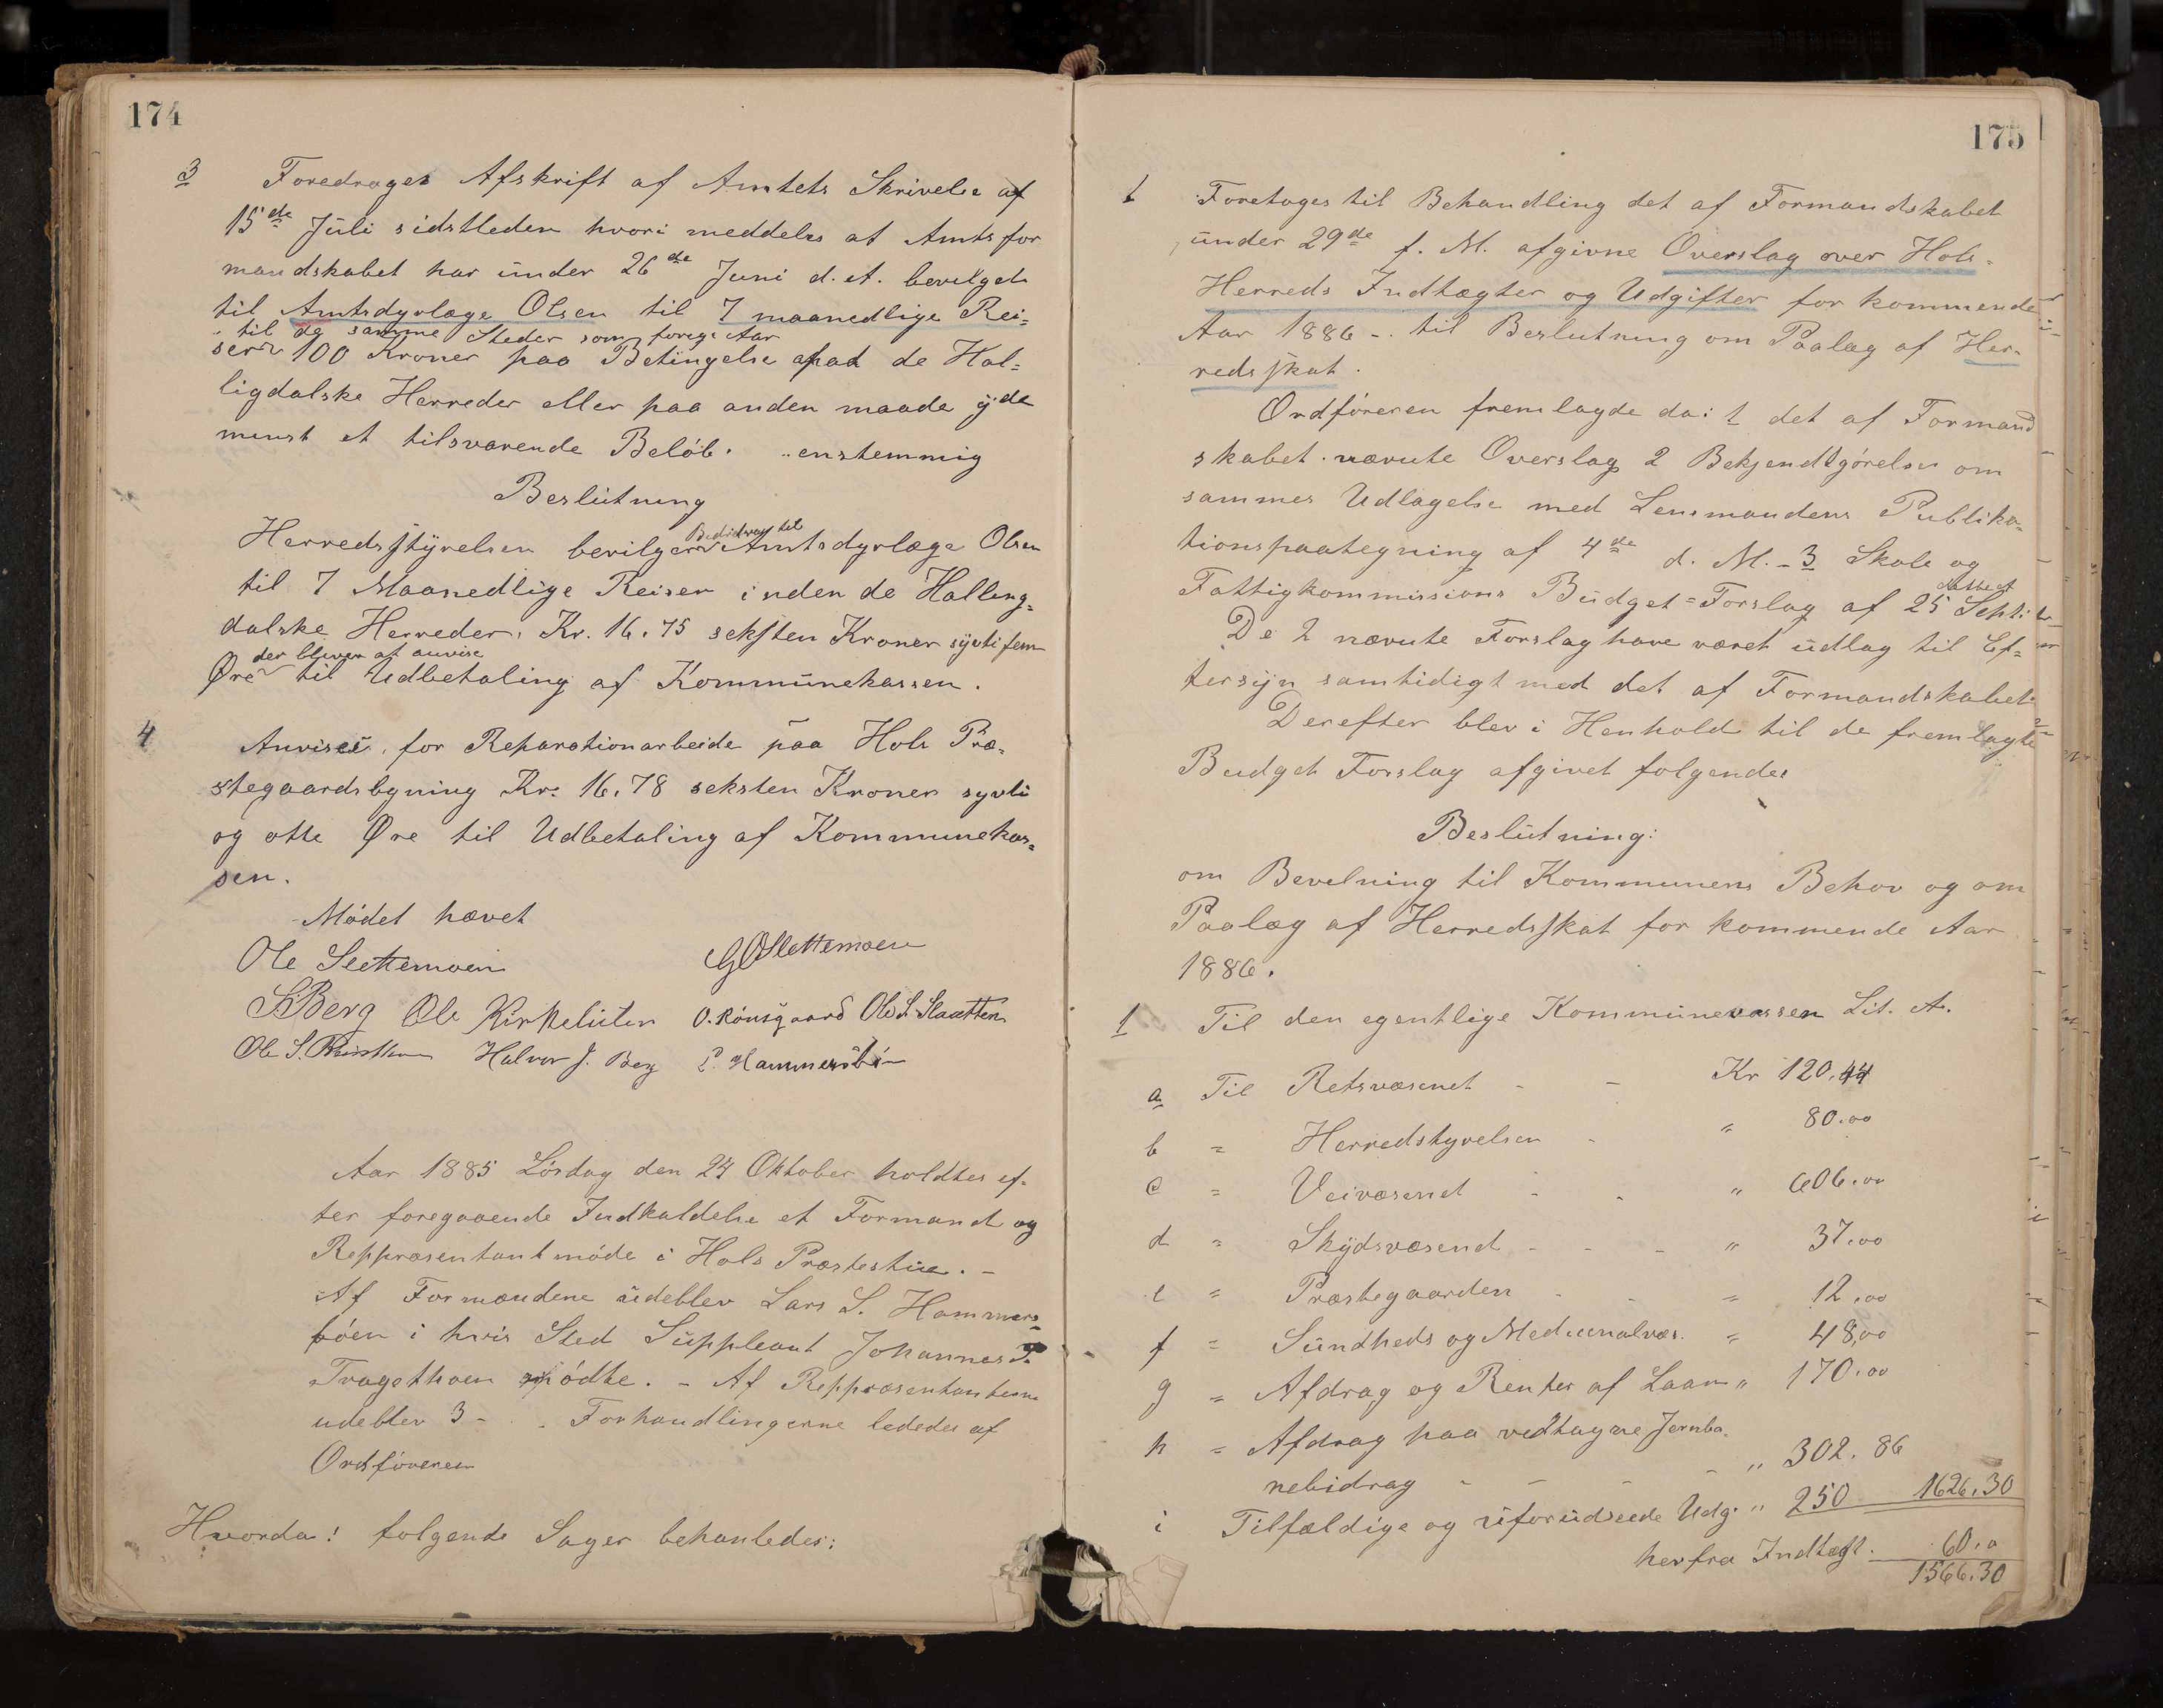 174
3 Foredrages Afskrift af Amtets Skrivelse af
15de Juli sidstleden hvori meddeles at Amtsfor
mandskabet har under 26de Juni d. A. bevilget
til Amtsdyrlæge Olsen til 7 maanedlige Rei=
til de samme Steder som forrige Aar
ser 100 Kroner paa Betingelse af at de Hal=
ligdalske Herreder eller paa anden maade yde
minst et tilsvarende Beløb. enstemmig
Beslutning
Bedidrag til
Herredsstyrelsen bevilger Amtsdyrlæge Olsen
til 7 Maanedlige Reiser inden de Halling=
dalske Herreder, Kr. 16.75 seksten Kroner sytti fem
der bliver at anvise
Øre til Udbetaling af Kommunekassen.
4 Anvises for Reparationarbeide paa Hols Præ=
stegaardsbygning Kr. 16.78 seksten Kroner sytti
og otte Øre til Udbetaling af Kommunekas=
sen.
Mødet hævet
Ole Slettemoen G O Slettemoen
S. Berg Ole Kirkeluten O. Rønsgaard Ole S. Slaatten
Ole S. Halvor J. Berg P. Hammersbøn
Aar 1885 Lørdag den 24 Oktober holdtes ef=
ter foregaaende Indkaldelse et Formand og
Reppræsentantmøde i Hols Præstestue. -
Af Formændene udeblev Lars S. Hammers=
bøen i hvis Sted Suppleant Johannes P.
Tragethoen mødte. - Af Reppræsentanterne
udeblev 3 - . Forhandlingerne lededes af
Ordføreren
Hvorda! følgende Sager behanledes:
175
1 Foretoges til Behandling det af Formandskabet
under 29de f. M. afgivne Overslag over Hols
Herreds Indtægter og Udgifter for kommende
Aar 1886 -. til Beslutning om Paalæg af Her=
redsskat.
Ordføreren fremlagde da: 1 det af Formand
skabet nævnte Overslag 2 Bekjendtgørelse om
sammes Udlagelse med Lensmandens Publika=
tionspaategning af 4de d. M. - 3 Skole og
Fattigkommissions Budget=Forslag af 25 Septi
De 2 nævnte Forslag have været udlag til Ef=
tersyn samtidigt med det af Formandskabet
Derefter blev i Henhold til de fremlagte
Budget Forslag afgivet følgende
Beslutning:
om Bevelning til Kommunens Behov og om
Paalæg af Herredsskat for kommende Aar
1886.
1 Til den egentlige Kommunekassen Lit. A.
a Til Retsvæsenet - - Kr 120.44
b = Herredstyrelsen - " 80.00
c = Veivæsenet - - " 606.00
d = Skydsvæsend - - - " 37.00
e = Præstegaarden - - = 12.00
f = Sundheds og Medicenalvæs. = 48,00
g = Afdrag og Renter af Laan " 170.00
h = Afdrag paa vedtagne Jernba=
nebidrag - - - - " 302.86
i Tilfældige og uforudseede Udg. " 250 1626.30
herfra Indtægt. 60.0
1566.30